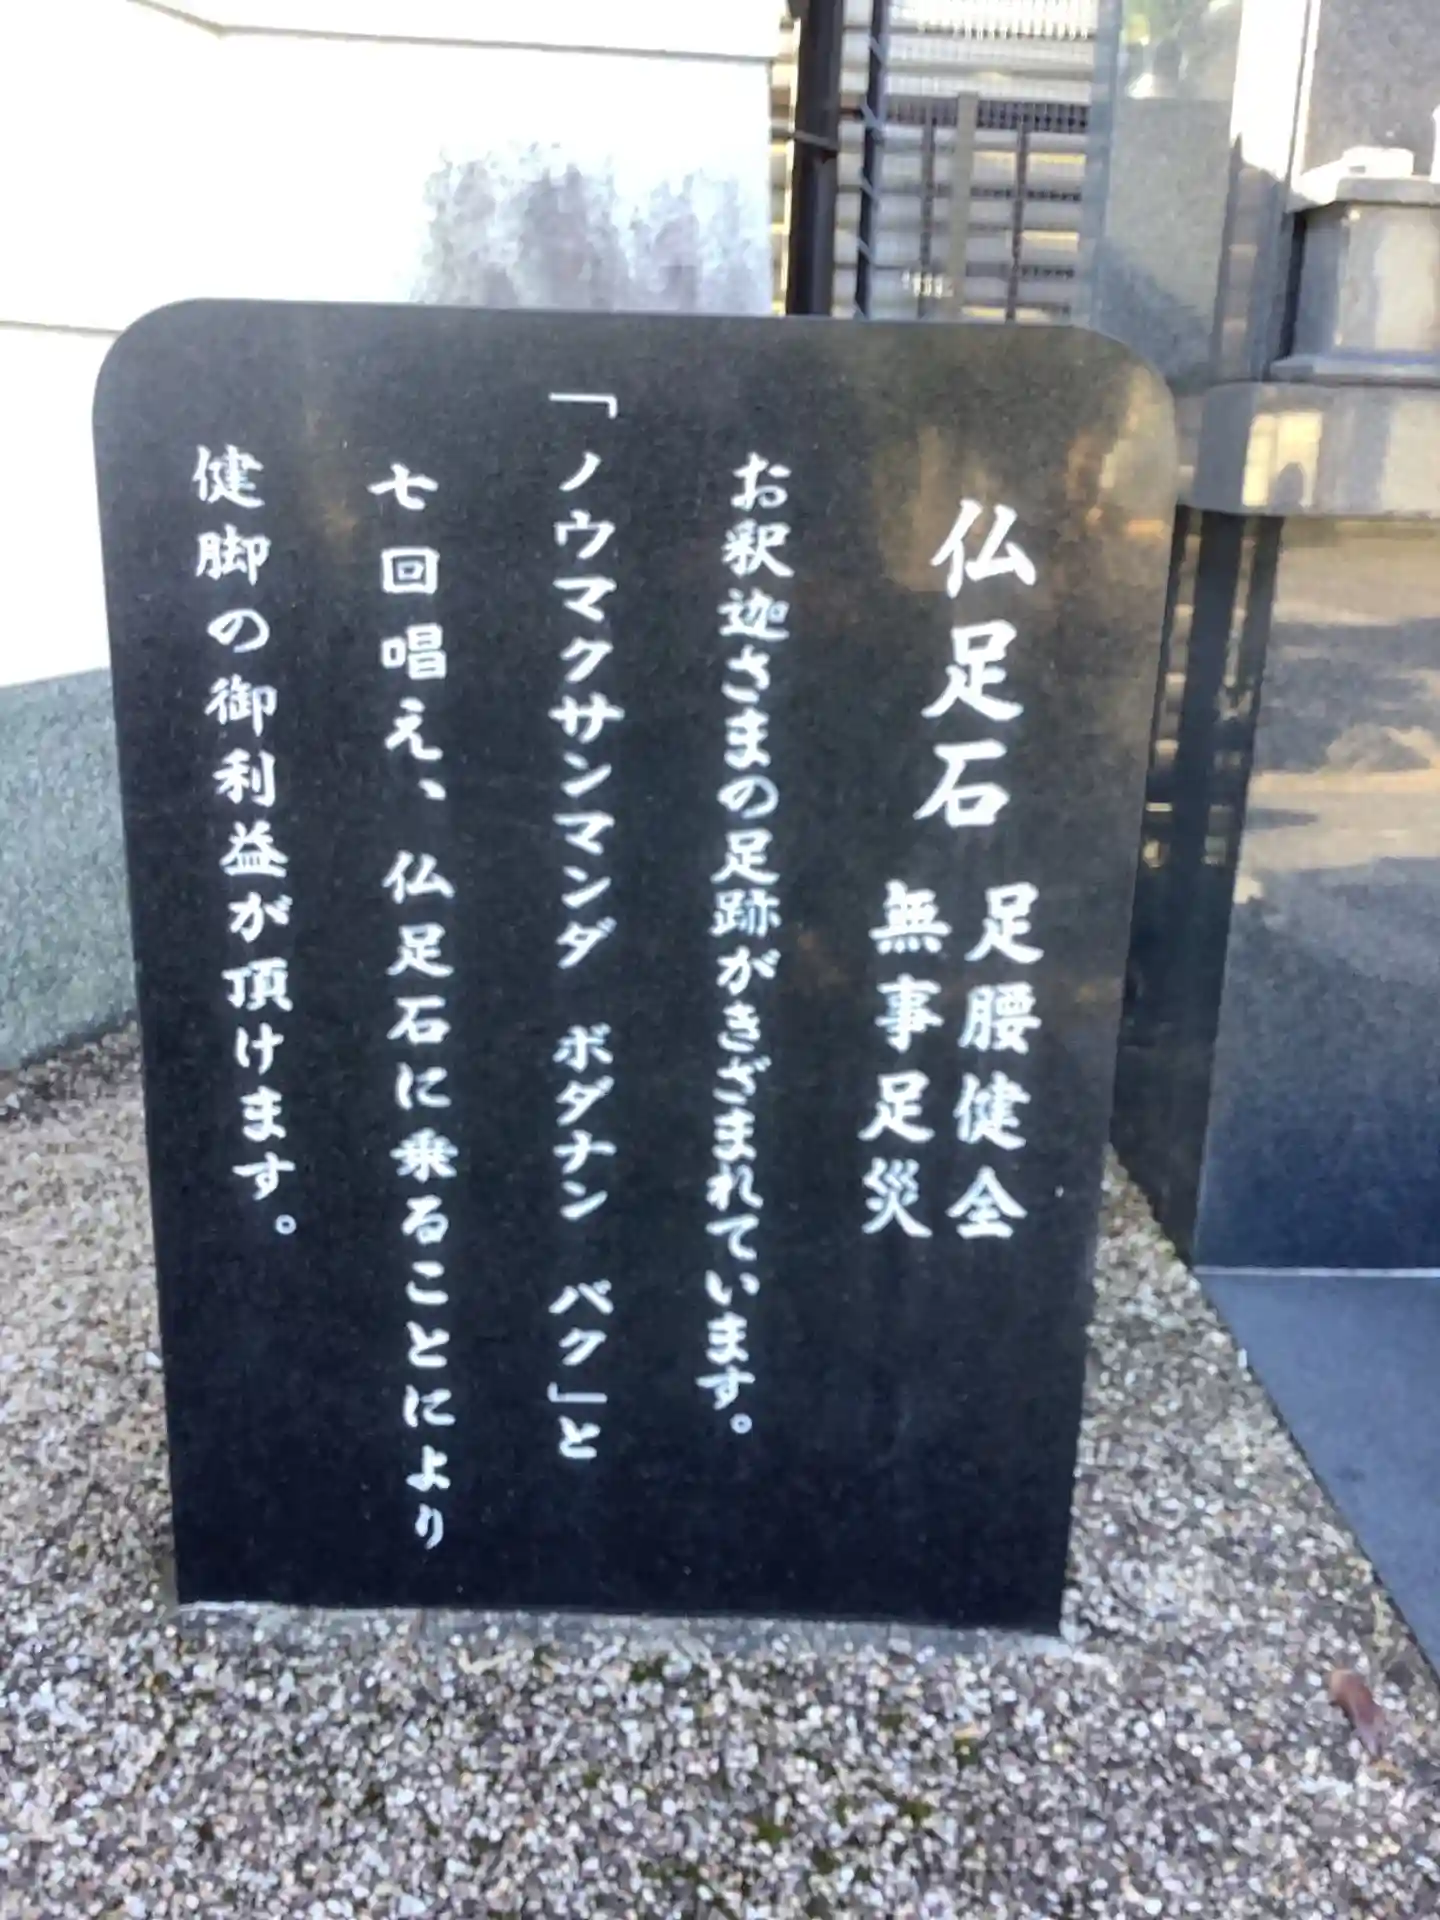 仏足石
足腰健全
無事足災
お釈迦さまの足跡がきざまれています。
「ノウマクサンマンダ　ボダナン　バク」と
七回唱え、仏足石に乗ることにより
健脚の御利益が頂けます。